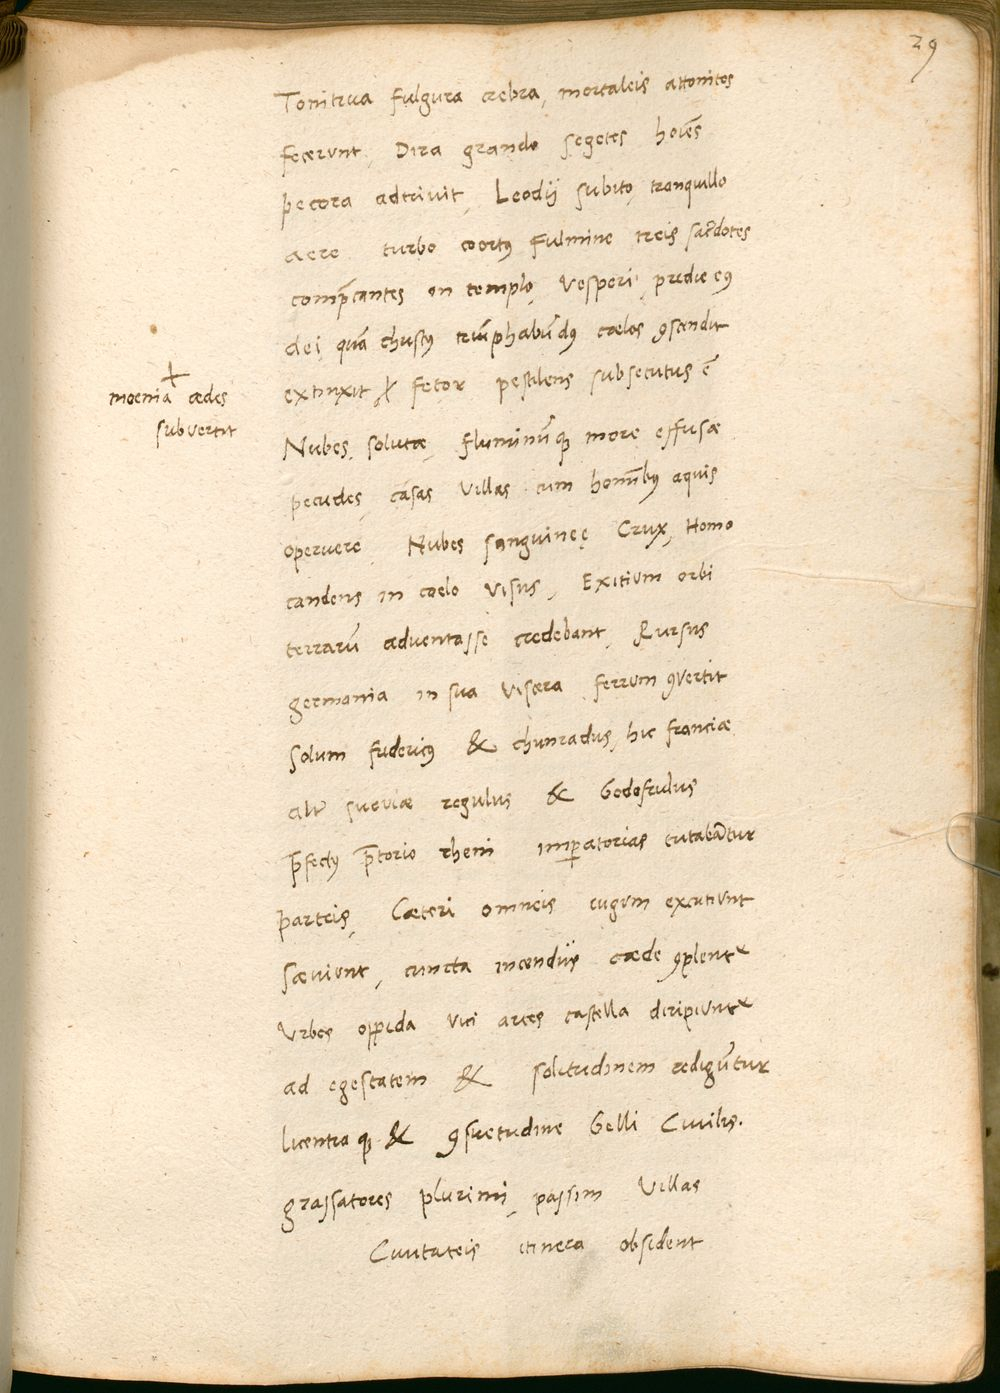 29
Tonitrua fulgura crebra, mortaleis attonitos
fecerunt, Dira grando segetes hoiēs
pecora adtrivit, Leodij subito, tranquillo
aere turbo coortꝰ fulmine treis sacr̄dotes
comp̄cantes in templo, Vesperi, predie eiꝰ
dei, quā christꝰ triūphabūdꝰ cœlos ꝯscendit
extinxit fetor pestilens subsecutus ē
moenia ædes
subvertit
Nubes, solutæ, fluminūqꝫ more effusæ
pecudes, casas Villas cum hominībꝰ aquis
operuere Nubes sanguineę Crux, Homo
candens in cœlo visus, Exitium orbi
terrarū adventasse credebant, Rursus
germania in sua viscera ferrum ꝯvertit
Solum fridericꝰ & chunradus, hic franciæ
alt̄ sueviæ regulus & Godofridus
p̄fectꝰ p̄torio rheni imꝑatorias tutabātur
parteis, Cæteri omneis iugum excutiunt
Sæviunt, cuncta incendijs cæde ꝯplent
Urbes oppida vici arces castella diripiunt
ad egestatem & solitudinem redigūtur
licentia qꝫ & ꝯsuetudine belli Civilis.
grassatores plurimi, passim Villas
Civitateis itinera obsident